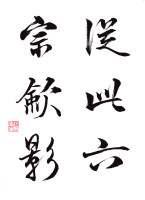 從此六
宗歛影